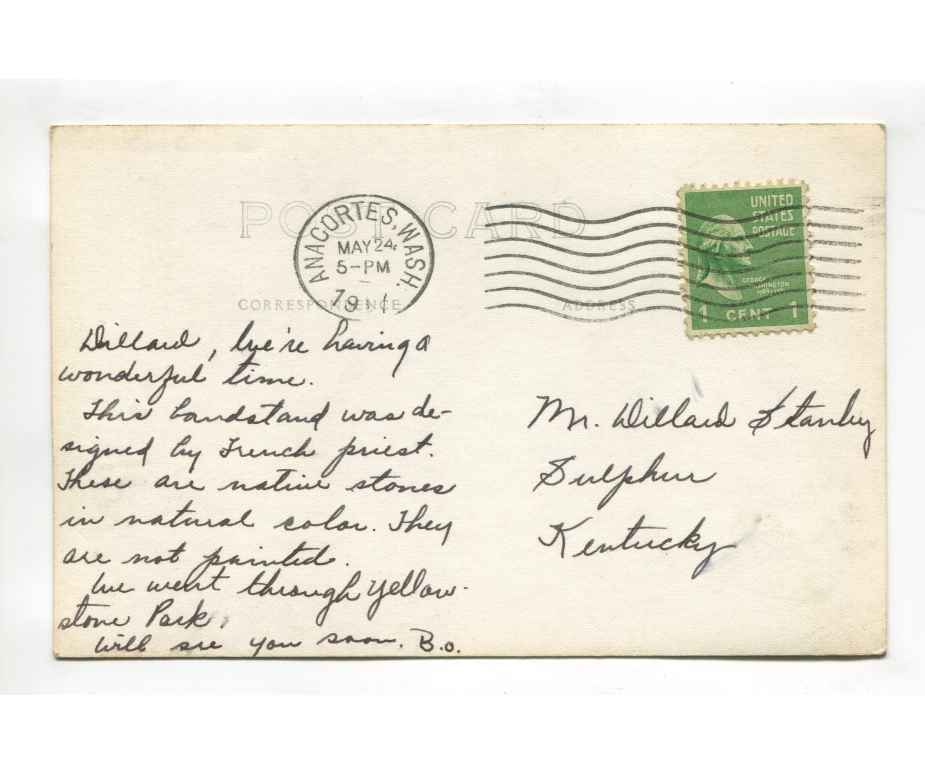 POST CARD
ANACORTES, WASH.
MAY 24
5-PM
19 1
UNITED
STATES
POSTAGE
GEORGE
WASHINGTON
1 CENT 1
CORRESPONDENCE
ADDRESS
Dillard, We're having a
wonderful time.
This bandstand was de-
signed by French priest.
These are native stones
in natural color. They
are not painted.
We went through Yellow-
stone Park.
Will see you soon. B.o.
Mr. Dillard Stanley
Sulphur
Kentucky